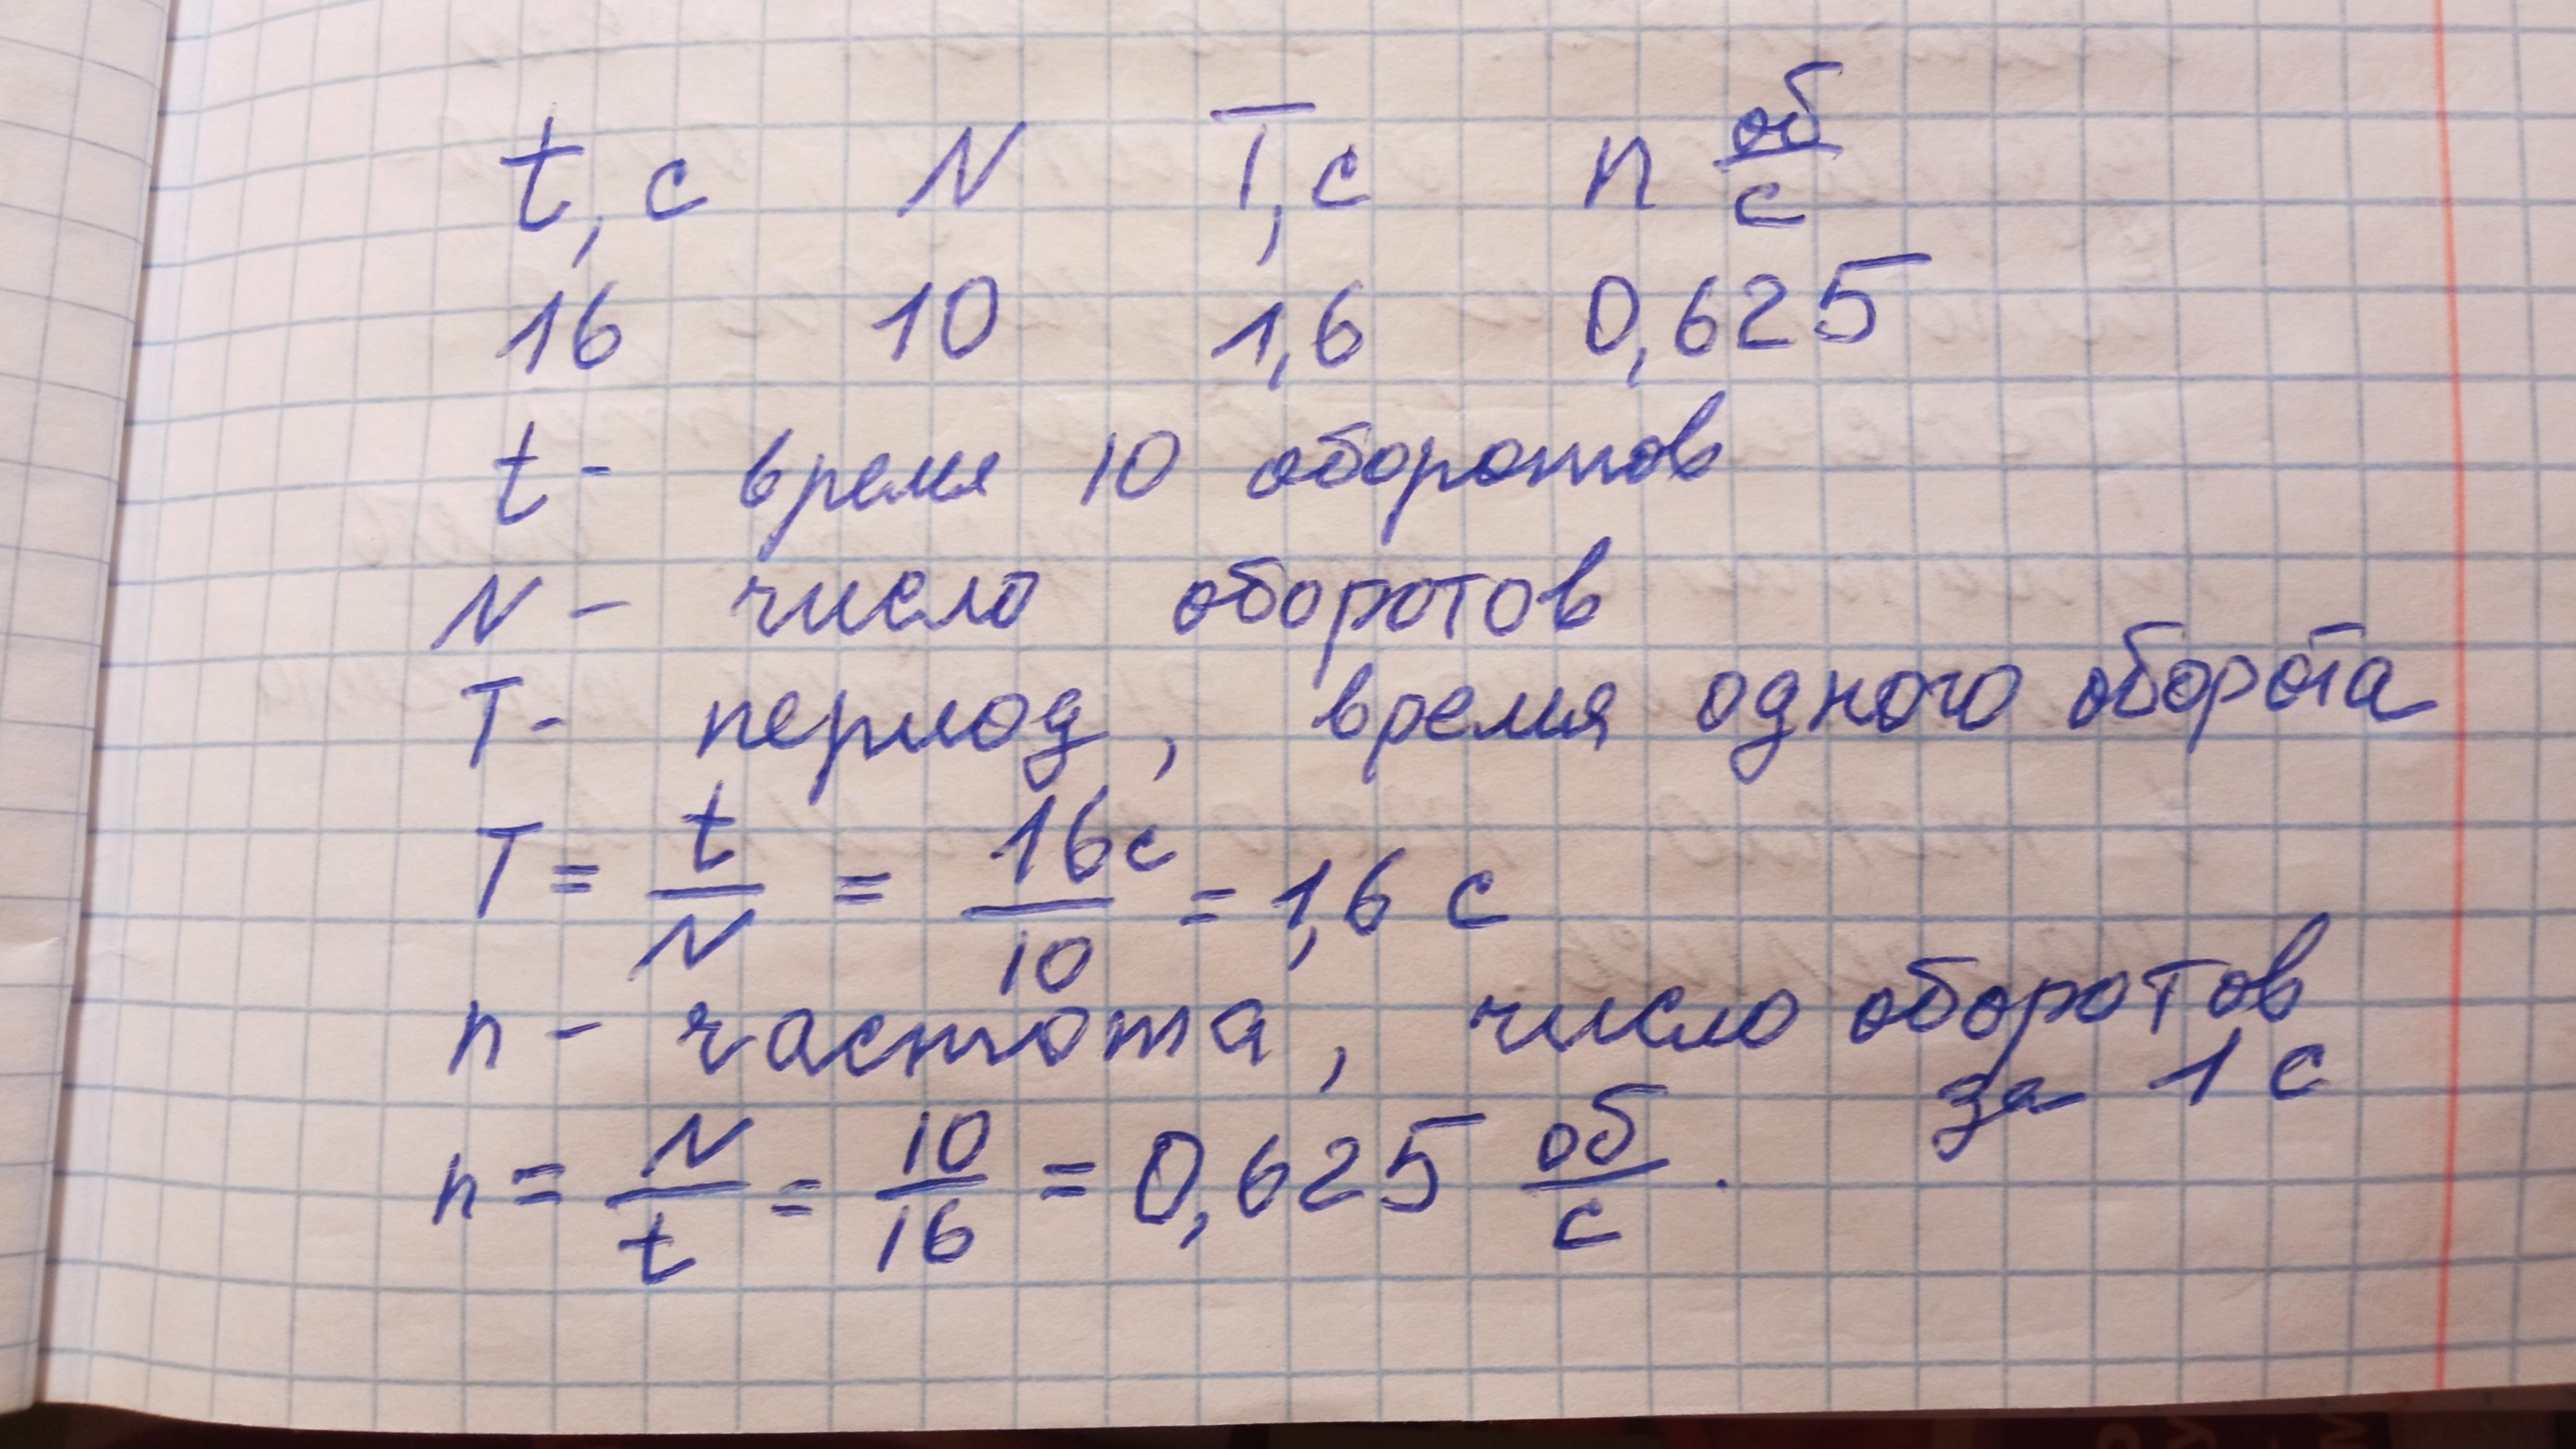 t, с N T, с n об/с
16 10 1,6 0,625
t - время 10 оборотов
N - число оборотов
T - период, время одного оборота
T = t/N = 16с/10 = 1,6 с
n - частота, число оборотов
за 1 с
n = N/t = 10/16 = 0,625 об/с.